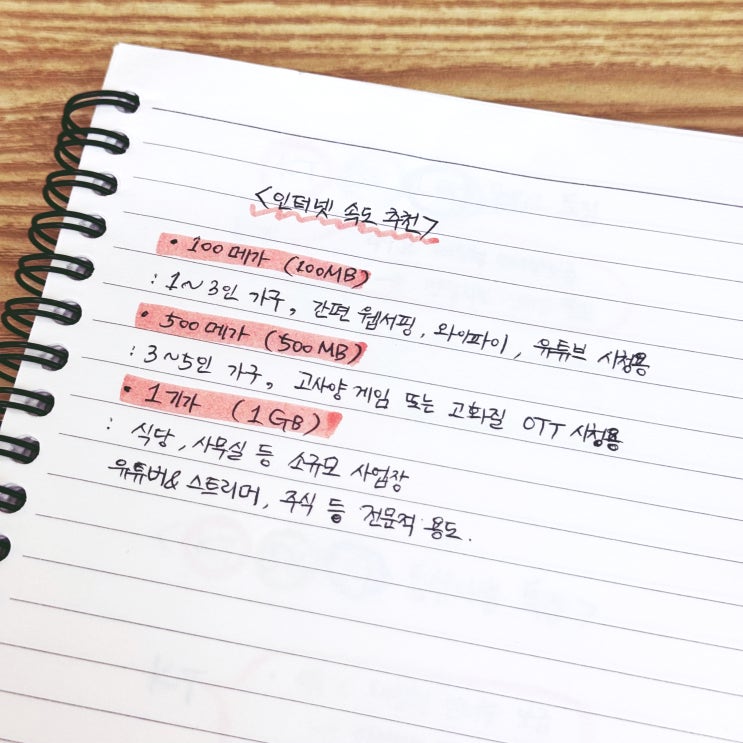 <인터넷 속도 추천>
• 100메가 (100MB)
: 1~3인 가구, 간편 웹서핑, 와이파이, 유튜브 시청용
• 500메가 (500MB)
: 3~5인 가구, 고사양 게임 또는 고화질 OTT 시청용
• 1기가 (1GB)
: 식당, 사무실 등 소규모 사업장
유튜버& 스트리머, 주식 등 전문적 용도.